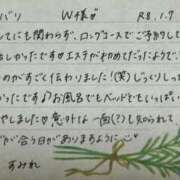 バリ W様 R8.1.7
してにも関わらず、ロングコースでご予約して
しかったです エステが初めてだったようで、
のがすごく伝わりました!(笑)じっくりしっ
だったです♪お風呂でもベッドでもいっぱい
やしました 意外な一面(?)も知られて
が合う日がありますように
すみれ